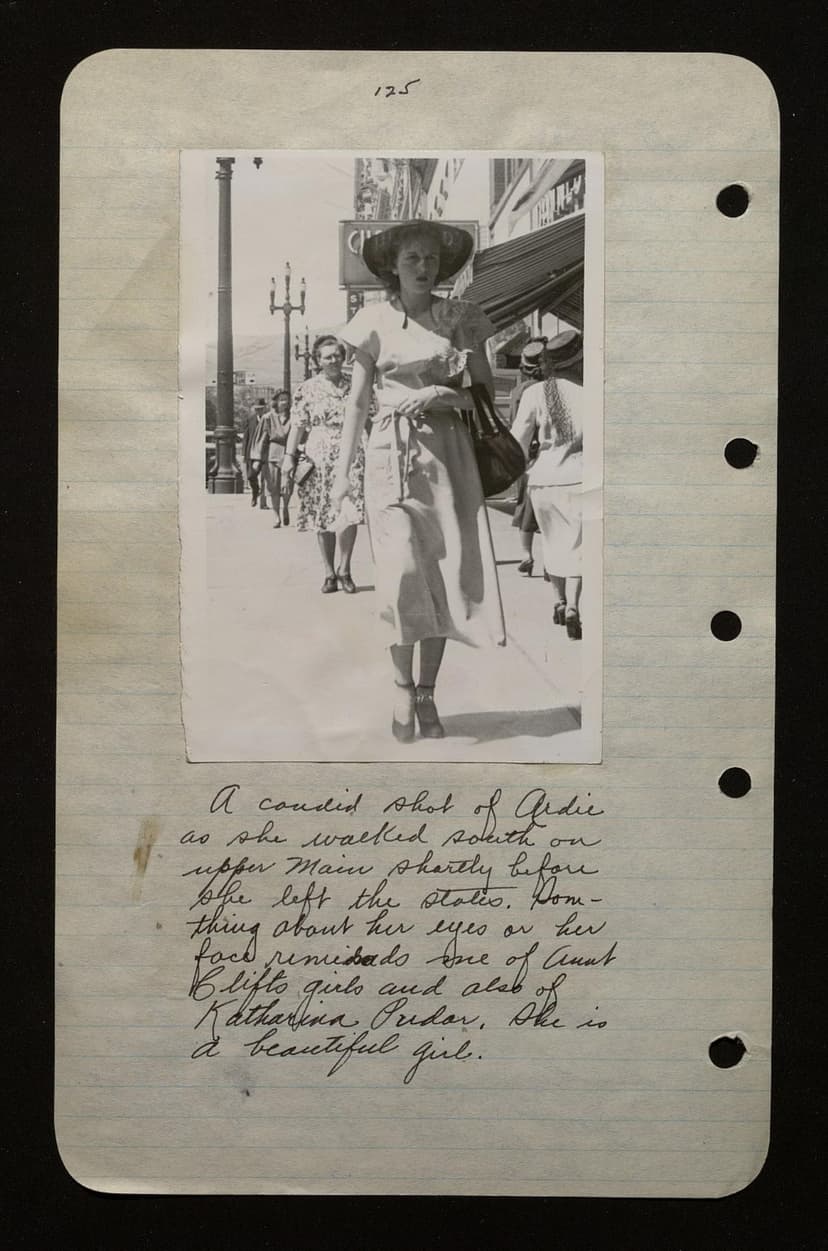 125
CH
A candid shot of Ardie
as she walked south on
upper Main shortly before
she left the states. Som-
thing about her eyes or her
face reminds me of Aunt
Clifts girls and also of
Katharina Pudor. She is
a beautiful girl.